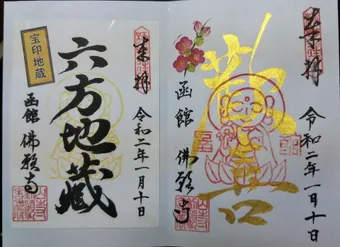 奉拝
令和二年一月十日
六方地蔵
宝印地蔵
函館 佛願寺
奉拝
令和二年一月十日
函館 佛願寺